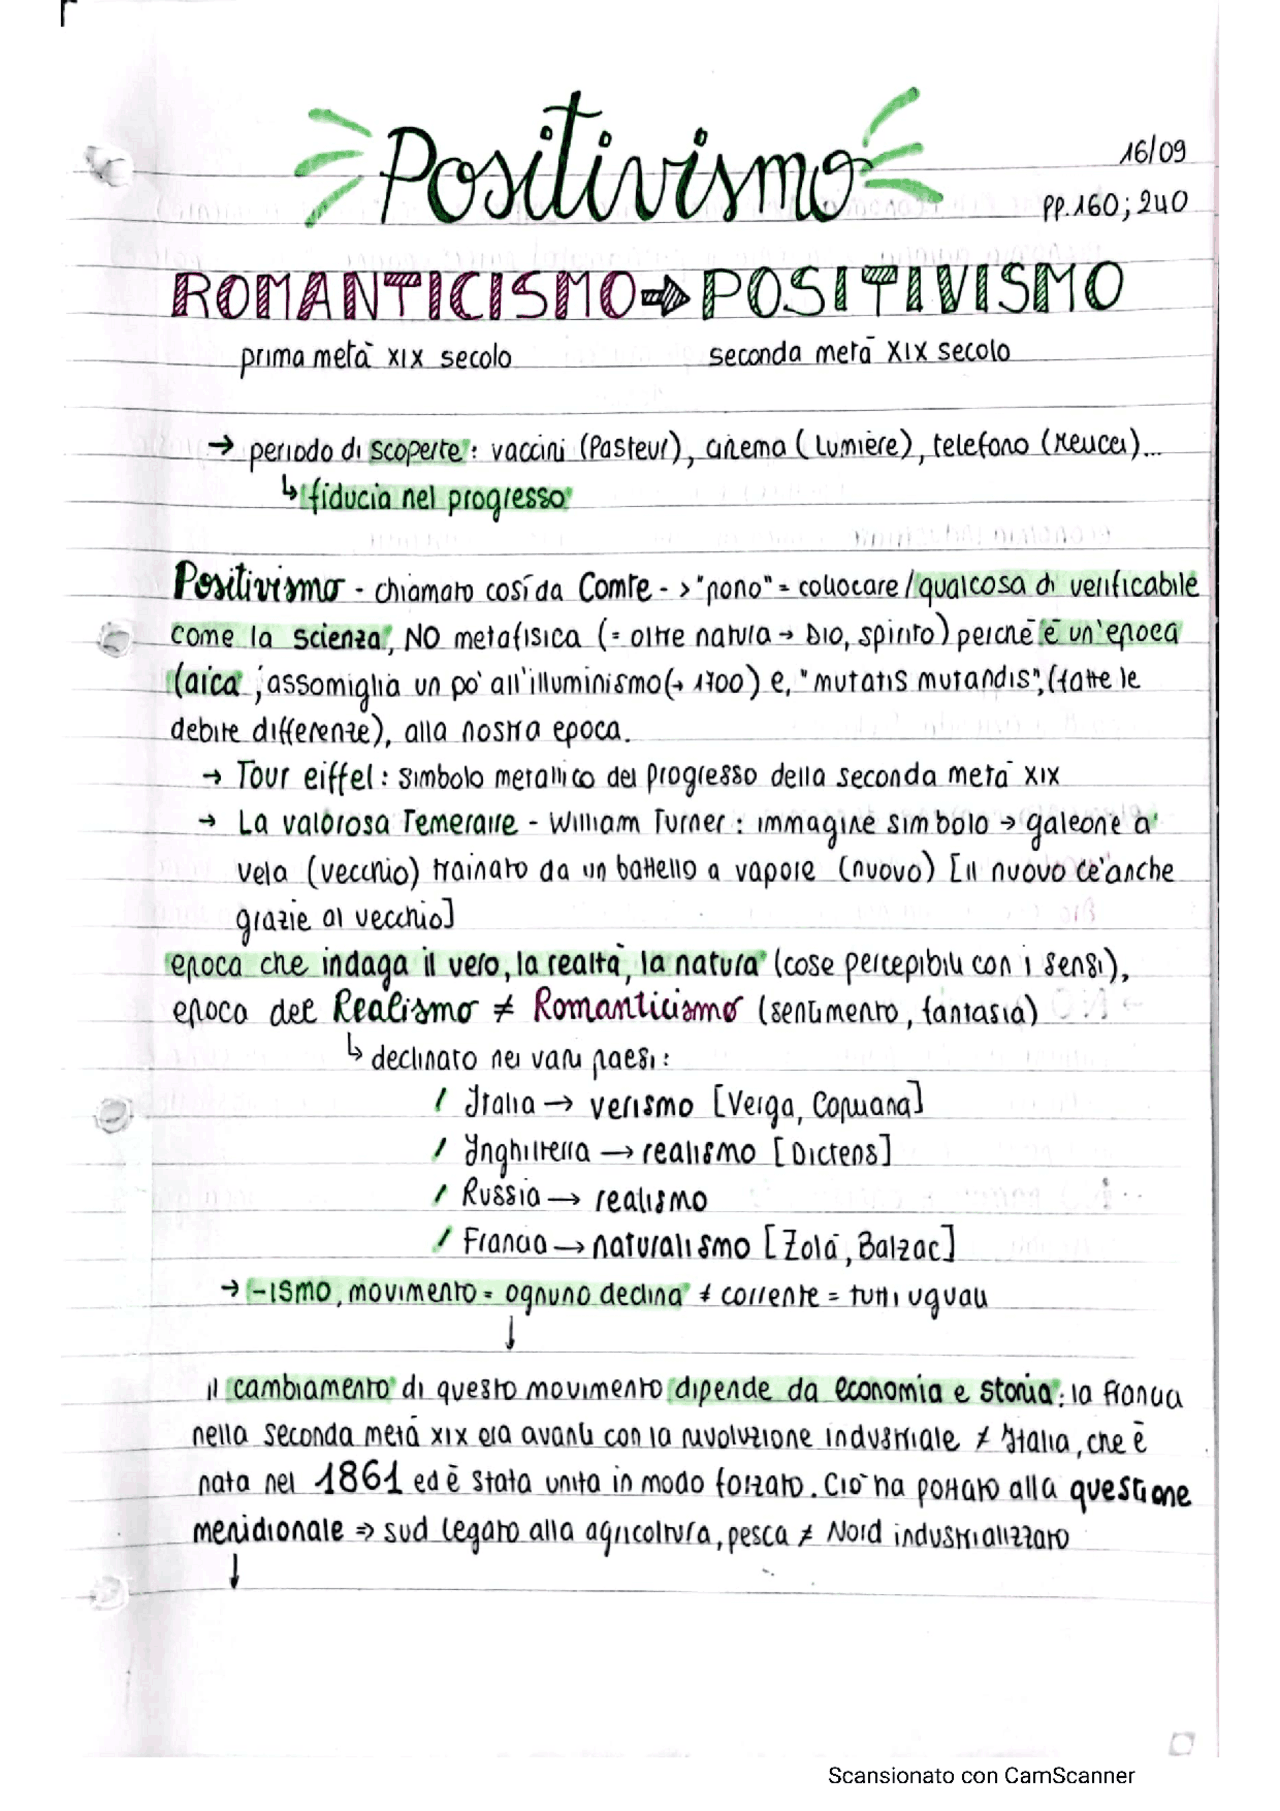 Positivismo
16/09
pp.160; 240
ROMANTICISMO ⇒ POSITIVISMO
prima metà XIX secolo
seconda metà XIX secolo
→ periodo di scoperte: vaccini (Pasteur), cinema (Lumière), telefono (Meucci)...
↳ fiducia nel progresso
Positivismo - chiamato così da Comte -> "pono" = collocare / qualcosa di verificabile
come la scienza, NO metafisica (= oltre natura → Dio, spirito) perché è un'epoca
laica; assomiglia un po' all'illuminismo (→ 1700) e, "mutatis mutandis", (fatte le
debite differenze), alla nostra epoca.
→ Tour eiffel: simbolo metallico del progresso della seconda metà XIX
→ La valorosa Temeraire - William Turner: immagine simbolo → galeone a
vela (vecchio) trainato da un battello a vapore (nuovo) [il nuovo c'è anche
grazie al vecchio]
epoca che indaga il vero, la realtà, la natura (cose percepibili con i sensi),
epoca del Realismo ≠ Romanticismo (sentimento, fantasia)
↳ declinato nei vari paesi:
/ Italia → verismo [Verga, Capuana]
/ Inghilterra → realismo [Dickens]
/ Russia → realismo
/ Francia → naturalismo [Zolá, Balzac]
→ -ismo, movimento = ognuno declina ≠ corrente = tutti uguali
↓
il cambiamento di questo movimento dipende da economia e storia: la Francia
nella seconda metà XIX era avanti con la rivoluzione industriale ≠ Italia, che è
nata nel 1861 ed è stata unita in modo forzato. Ciò ha portato alla questione
meridionale ⇒ sud legato alla agricoltura, pesca ≠ Nord industrializzato
↓
Scansionato con CamScanner